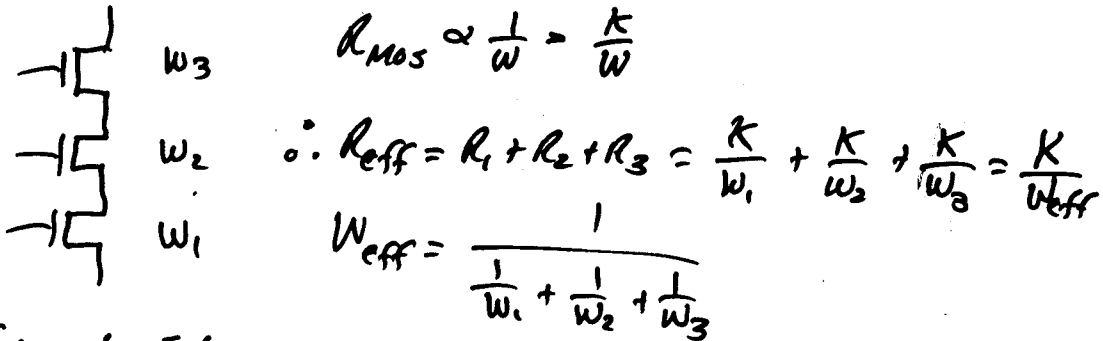 W3
R_MOS ∝ 1/W = K/W
W2
∴ R_eff = R1 + R2 + R3 = K/W1 + K/W2 + K/W3 = K/W_eff
W1
W_eff = 1/(1/W1 + 1/W2 + 1/W3)